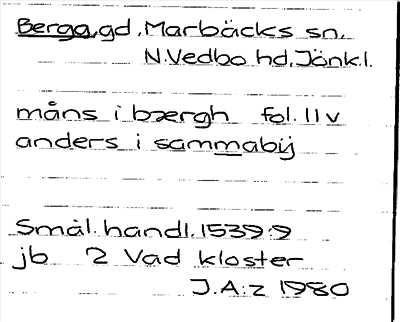 Berga, gd, Marbäcks sn,
N. Vedbo hd, Jönk. l.
måns i bærgh fol. 11v
anders i sammabij
Smål. handl. 1539:9
jb 2 Vad kloster
J.A:z 1980